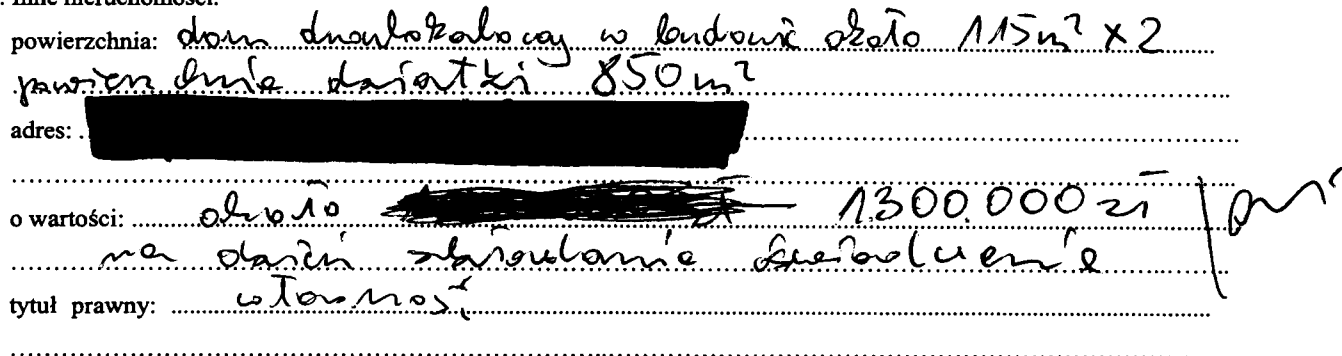 . Inne nieruchomości:
powierzchnia: dom dwulokalowy w budowie około 115 m² x 2
powierzchnia działki 850 m²
adres:
o wartości: około 1.300.000 zł
na dzień składania
tytuł prawny: własność